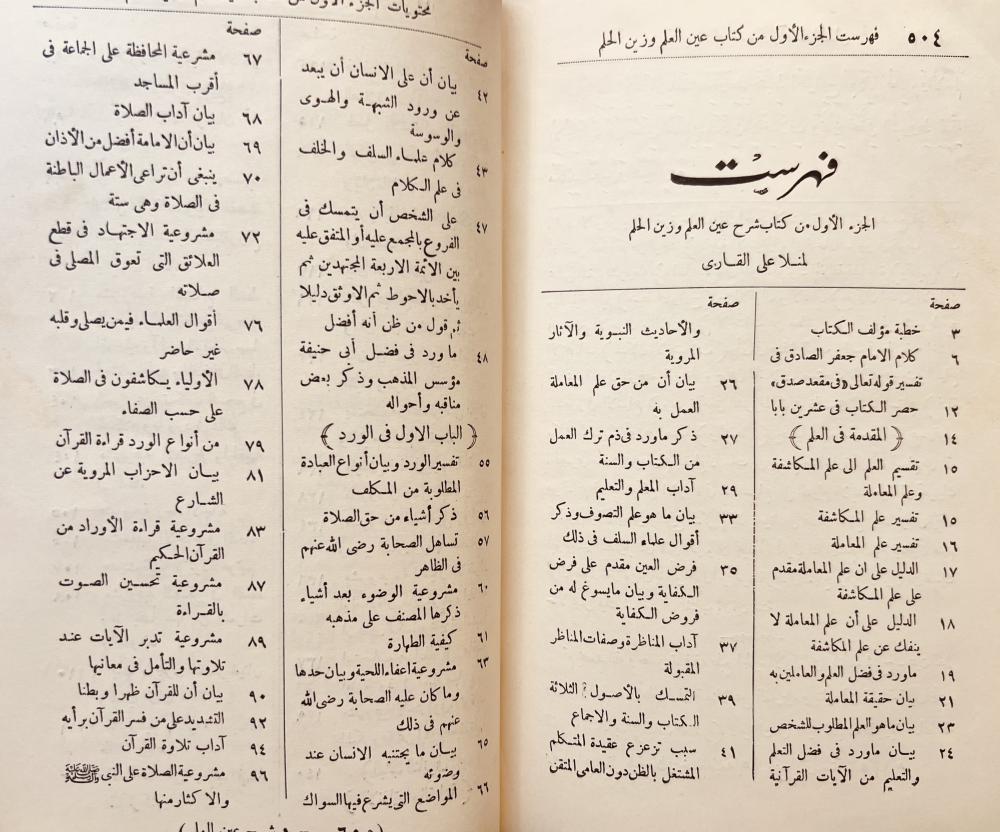 ٥٠٤ فهرست الجزء الأول من كتاب عين العلم وزين الحلم
فهرست
الجزء الأول من كتاب شرح عين العلم وزين الحلم
لمنلا على القارى
صفحة
٣ خطبة مؤلف الكتاب
٦ كلام الامام جعفر الصادق فى
تفسير قوله تعالى «فى مقعد صدق»
١٢ حصر الكتاب فى عشرين بابا
١٤ (المقدمة فى العلم)
١٥ تقسيم العلم الى علم المكاشفة
وعلم المعاملة
١٥ تفسير علم المكاشفة
١٦ تفسير علم المعاملة
١٧ الدليل على ان علم المعاملة مقدم
على علم المكاشفة
١٨ الدليل على أن علم المعاملة لا
ينفك عن علم المكاشفة
١٩ ماورد فى فضل العلم والعاملين به
٢١ بيان حقيقة المعاملة
٢٣ بيان ماهو العلم المطلوب للشخص
٢٤ بيان ماورد فى فضل التعلم
والتعليم من الآيات القرآنية
صفحة
والأحاديث النبوية والآثار
المروية
٢٦ بيان أن من حق علم المعاملة
العمل به
٢٧ ذكر ماورد فى ذم ترك العمل
من الكتاب والسنة
٢٩ آداب المعلم والتعليم
٣٣ بيان ما هو علم التصوف وذكر
أقوال علماء السلف فى ذلك
٣٥ فرض العين مقدم على فرض
الكفاية وبيان مايسوغ له من
فروض الكفاية
٣٧ آداب المناظرة وصفات المناظر
المقبولة
٣٩ التمسك بالأصول الثلاثة
الكتاب والسنة والاجماع
٤١ سبب تزعزع عقيدة المتكلم
المشتغل بالظن دون العامى المتقن
محتويات الجزء الأول من
صفحة
٤٢ بيان أن على الانسان أن يبعد
عن ورود الشبهة والهوى
والوسوسة
٤٣ كلام علماء السلف والخلف
فى علم الكلام
٤٧ على الشخص أن يتمسك فى
الفروع بالمجمع عليه أو المتفق عليه
بين الائمة الاربعة المجتهدين ثم
يأخد بالاحوط ثم الاوثق دليلا
ثم قول من ظن أنه أفضل
٤٨ ماورد فى فضل أبى حنيفة
مؤسس المذهب وذكر بعض
مناقبه وأحواله
(الباب الاول فى الورد)
٥٥ تفسير الورد وبيان أنواع العبادة
المطلوبة من المكلف
٥٦ ذكر أشياء من حق الصلاة
٥٧ تساهل الصحابة رضى الله عنهم
فى الظاهر
٦٠ مشروعية الوضوء بعد أشياء
ذكرها المصنف على مذهبه
٦١ كيفية الطهارة
٦٣ مشروعية اعفاء اللحية وبيان حدها
وما كان عليه الصحابة رضى الله
عنهم فى ذلك
٦٥ بيان ما يجتنبه الانسان عند
وضوئه
٦٦ المواضع التى يشرع فيها السواك
صفحة
٦٧ مشروعية المحافظة على الجماعة فى
أقرب المساجد
٦٨ بيان آداب الصلاة
٦٩ بيان أن الامامة أفضل من الأذان
٧٠ ينبغى أن تراعى الأعمال الباطنة
فى الصلاة وهى ستة
٧٢ مشروعية الاجتهاد فى قطع
العلائق التى تعوق المصلى فى
صلاته
٧٦ أقوال العلماء فيمن يصلى وقلبه
غير حاضر
٧٨ الأولياء يكاشفون فى الصلاة
على حسب الصفاء
٧٩ من أنواع الورد قراءة القرآن
٨١ بيان الاحزاب المروية عن
الشارع
٨٣ مشروعية قراءة الأوراد من
القرآن الحكيم
٨٧ مشروعية تحسين الصوت
بالقراءة
٨٩ مشروعية تدبر الآيات عند
تلاوتها والتأمل فى معانيها
٩٠ بيان أن للقرآن ظهرا وبطنا
٩٢ التشديد على من فسر القرآن برأيه
٩٤ آداب تلاوة القرآن
٩٦ مشروعية الصلاة على النبى ﷺ
والاكثار منها